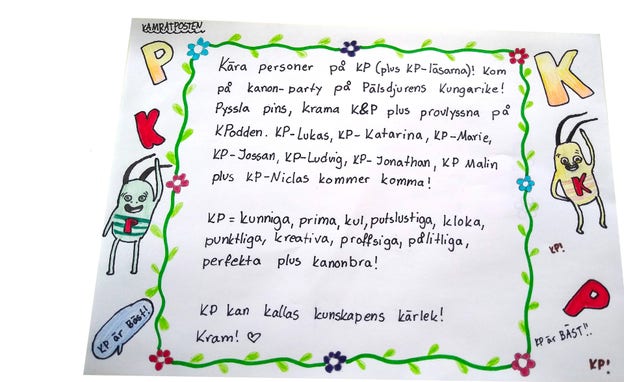 KAMRATPOSTEN
P
K
K
Kära personer på KP (plus KP-läsarna)! Kom
på kanon-party på Pälsdjurens Kungarike!
Pyssla pins, krama K&P plus provlyssna på
KPodden. KP-Lukas, KP-Katarina, KP-Marie,
KP-Jossan, KP-Ludvig, KP-Jonathan, KP Malin
plus KP-Niclas kommer komma!
KP = kunniga, prima, kul, putslustiga, kloka,
punktliga, kreativa, proffsiga, pålitliga,
perfekta plus kanonbra!
KP kan kallas kunskapens kärlek!
Kram! ♡
P
K
KP är Bäst!
KP!
P
KP är BÄST!!
KP!